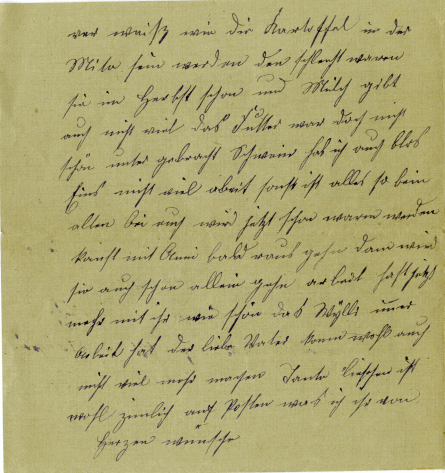 wer waisz wie die Kartoffel in der
Mita sein werden den schlecht waren
sie im Herbst schon und Milch gibt
auch nicht viel das Futter war doch nicht
schön unter gebracht Schweine hab ich auch blos
Eins nicht viel abeit sonst ist alles so beim
alten bei euch wird jetzt schon warm werden
kanst mit Anni bald raus gehn dann wird
sie auch schon allein gehn arbeit hast jetzt
mehr mit ihr wie schön das Wylli imer
Arbeit hat der liebe Vater kann wohl auch
nicht viel mehr machen Tante Lieschen ist
wohl zimlich auf Posten was ich ihr von
Herzen wünsche